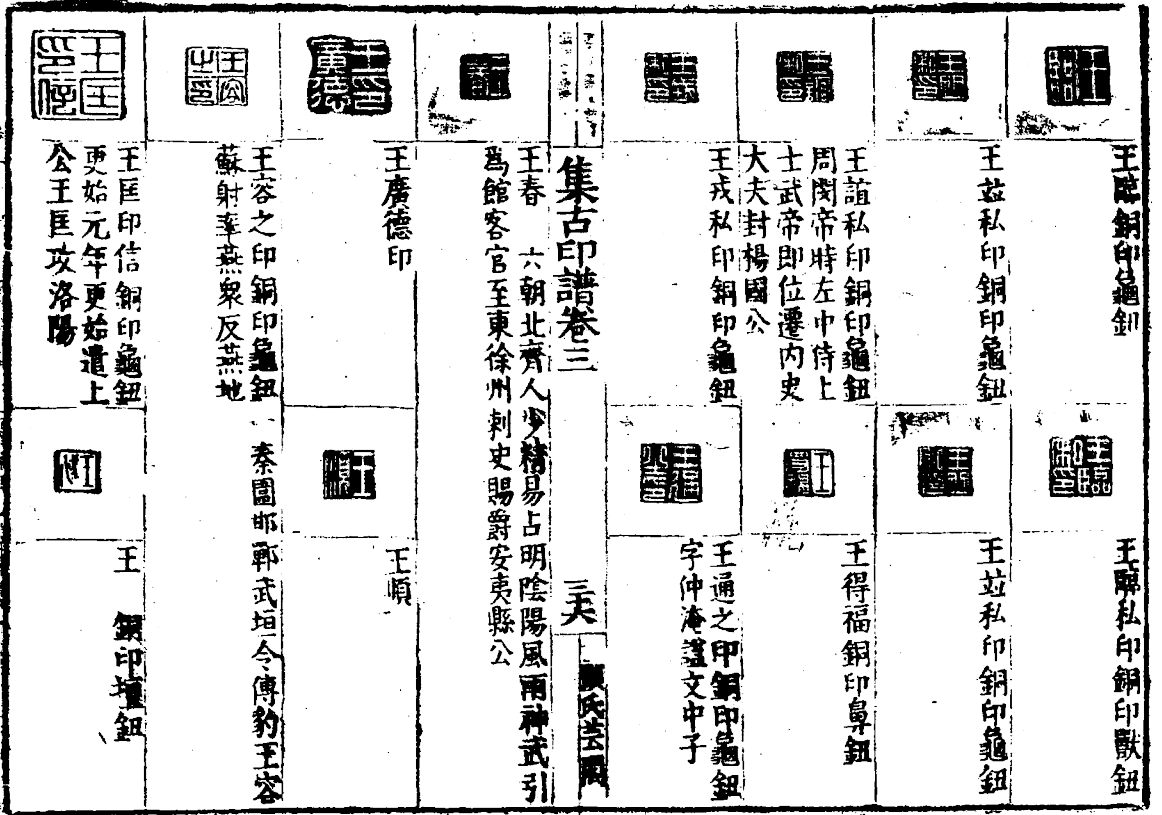 王臨銅印龜鈕
王臨私印銅印獸鈕
王竝私印銅印龜鈕
王竝私印銅印龜鈕
王誼私印銅印龜鈕
周閔帝時左中侍上
士武帝即位遷内史
大夫封楊國公
王得福銅印鼻鈕
王戎私印銅印龜鈕
王通之印銅印龜鈕
字仲淹諡文中子
集古印譜卷三
三六
顧氏芸閣
王春 六朝北齊人少精易占明陰陽風雨神武引
爲館客官至東徐州刺史賜爵安夷縣公
王廣德印
王順
王容之印銅印龜鈕 秦圍邯鄲武垣令傅豹王容
蘇射率燕衆反燕地
王匡印信銅印龜鈕
更始元年更始遣上
公王匡攻洛陽
王 銅印壇鈕